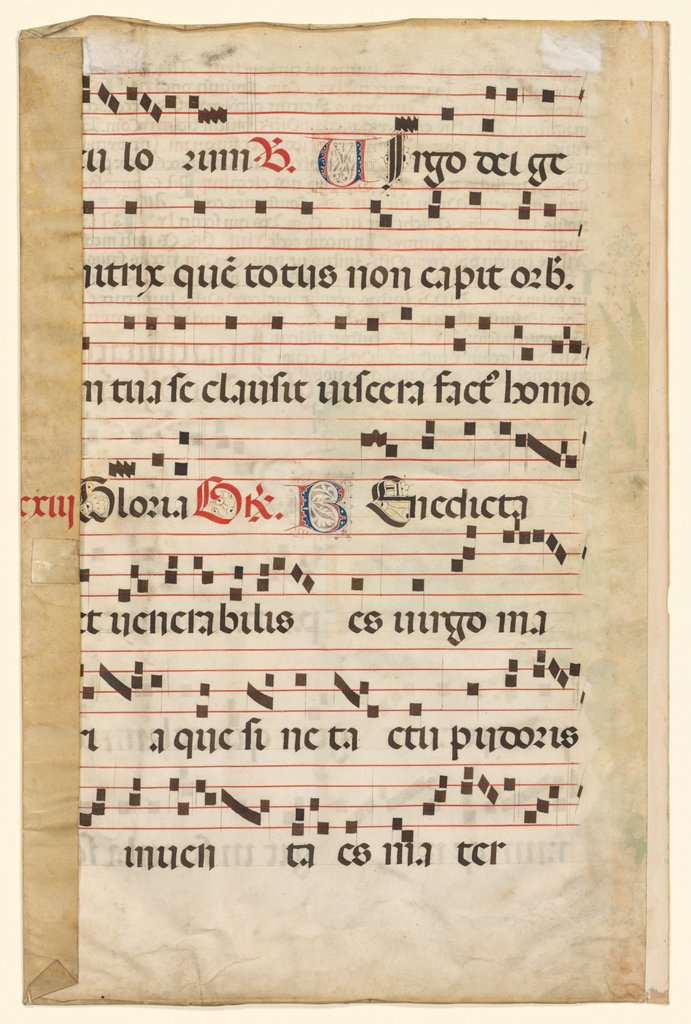 cu lo rum ℟. UIrgo dei ge
nitrix quē totus non capit orb.
in tua se clausit uiscera fact⁹ homo.
xiij Gloria Gr̄. BEnedicta
et uenerabilis es uirgo ma
ri a que si ne ta ctu pudoris
inuen ta es ma ter